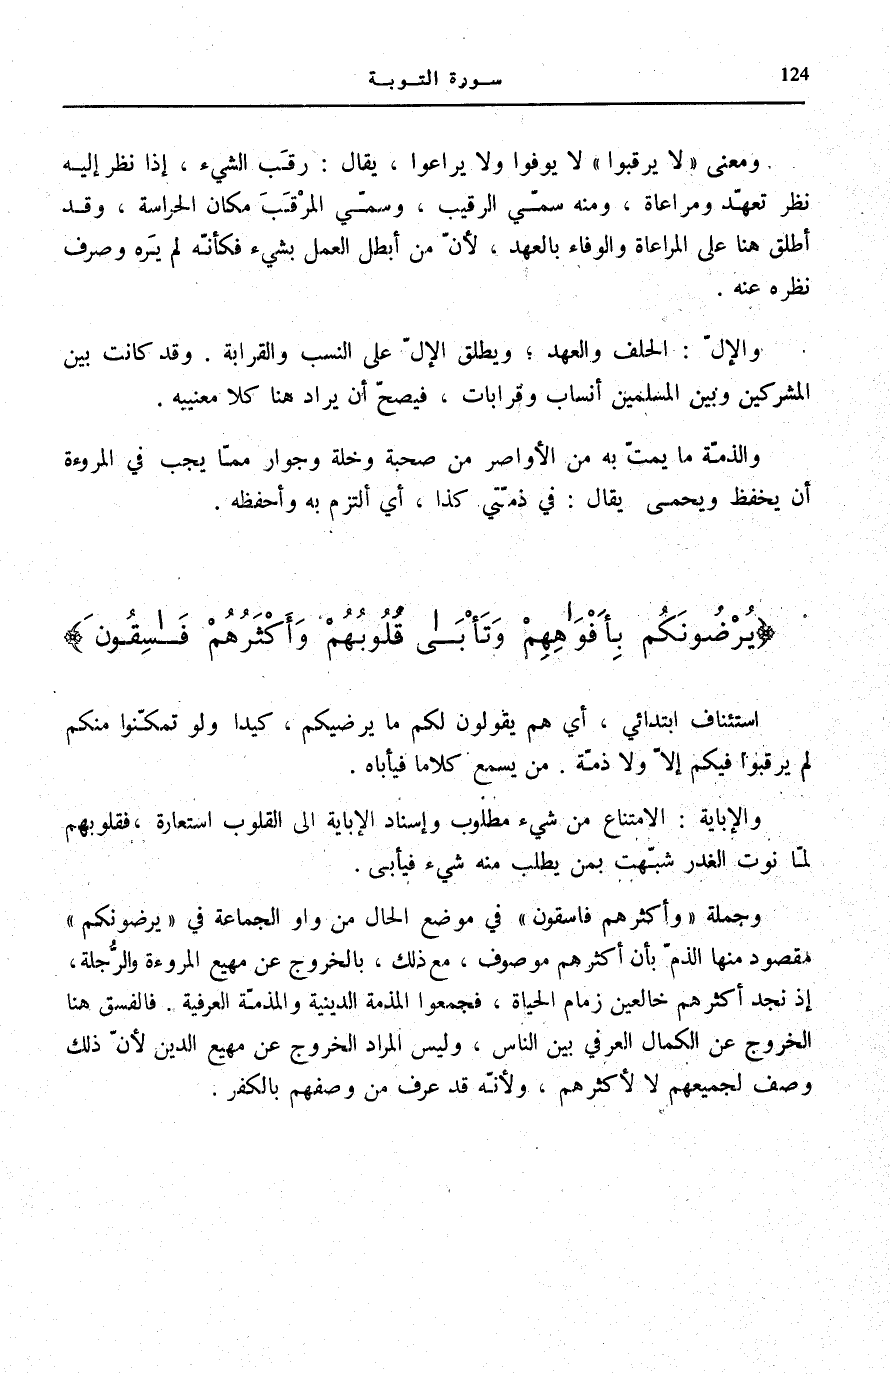 124
سـورة التـوبـة
ومعنى «لا يرقبوا» لا يوفوا ولا يراعوا ، يقال : رقَب الشيء ، إذا نظر إليـه
نظر تعهّد ومراعاة ، ومنه سمّـي الرقيب ، وسمّـي المرْقَبَ مكان الحراسة ، وقـد
أطلق هنا على المراعاة والوفاء بالعهد ، لأنّ من أبطل العمل بشيء فكأنّه لم يَره وصرف
نظره عنه .
والإلّ : الحلف والعهد ؛ ويطلق الإلّ على النسب والقرابة . وقد كانت بين
المشركين وبين المسلمين أنساب وقرابات ، فيصحّ أن يراد هنا كلا معنييه .
والذمّة ما يمتّ به من الأواصر من صحبة وخلة وجوار ممّا يجب في المروءة
أن يحفظ ويحمـى يقال : في ذمّتي كذا ، أي ألتزم به وأحفظه .
﴿يُرْضُونَكُم بِأَفْوَٰهِهِمْ وَتَأْبَـىٰ قُلُوبُهُمْ وَأَكْثَرُهُمْ فَـٰسِقُونَ﴾
استئناف ابتدائي ، أي هم يقولون لكم ما يرضيكم ، كيدا ولو تمكّنوا منكم
لم يرقبوا فيكم إلاّ ولا ذمّة . من يسمع كلاما فيأباه .
والإباية : الامتناع من شيء مطلوب وإسناد الإباية الى القلوب استعارة ،فقلوبهم
لمّا نوت الغدر شبّهت بمن يطلب منه شيء فيأبى .
وجملة «وأكثرهم فاسقون» في موضع الحال من واو الجماعة في «يرضونكم»
مقصود منها الذمّ بأن أكثرهم موصوف ، مع ذلك ، بالخروج عن مهيع المروءة والرُّجلة،
إذ نجد أكثرهم خالعين زمام الحياة ، فجمعوا المذمة الدينية والمذمّة العرفية . فالفسق هنا
الخروج عن الكمال العرفي بين الناس ، وليس المراد الخروج عن مهيع الدين لأنّ ذلك
وصف لجميعهم لا لأكثرهم ، ولأنّه قد عرف من وصفهم بالكفر .